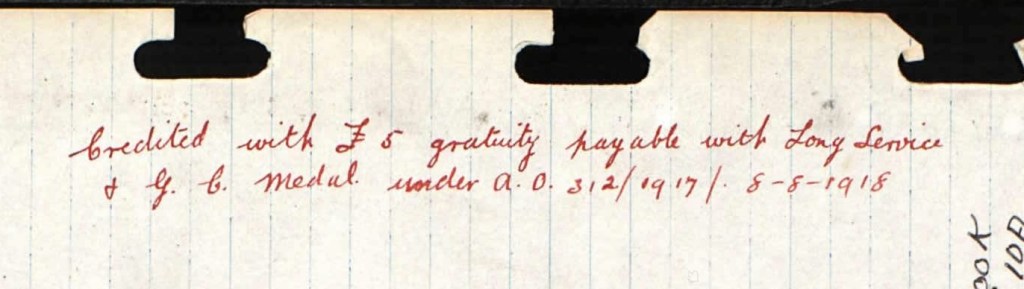 Credited with £5 gratuity payable with Long Service
& G. C. Medal under A. O. 312/1917/. 8-8-1918